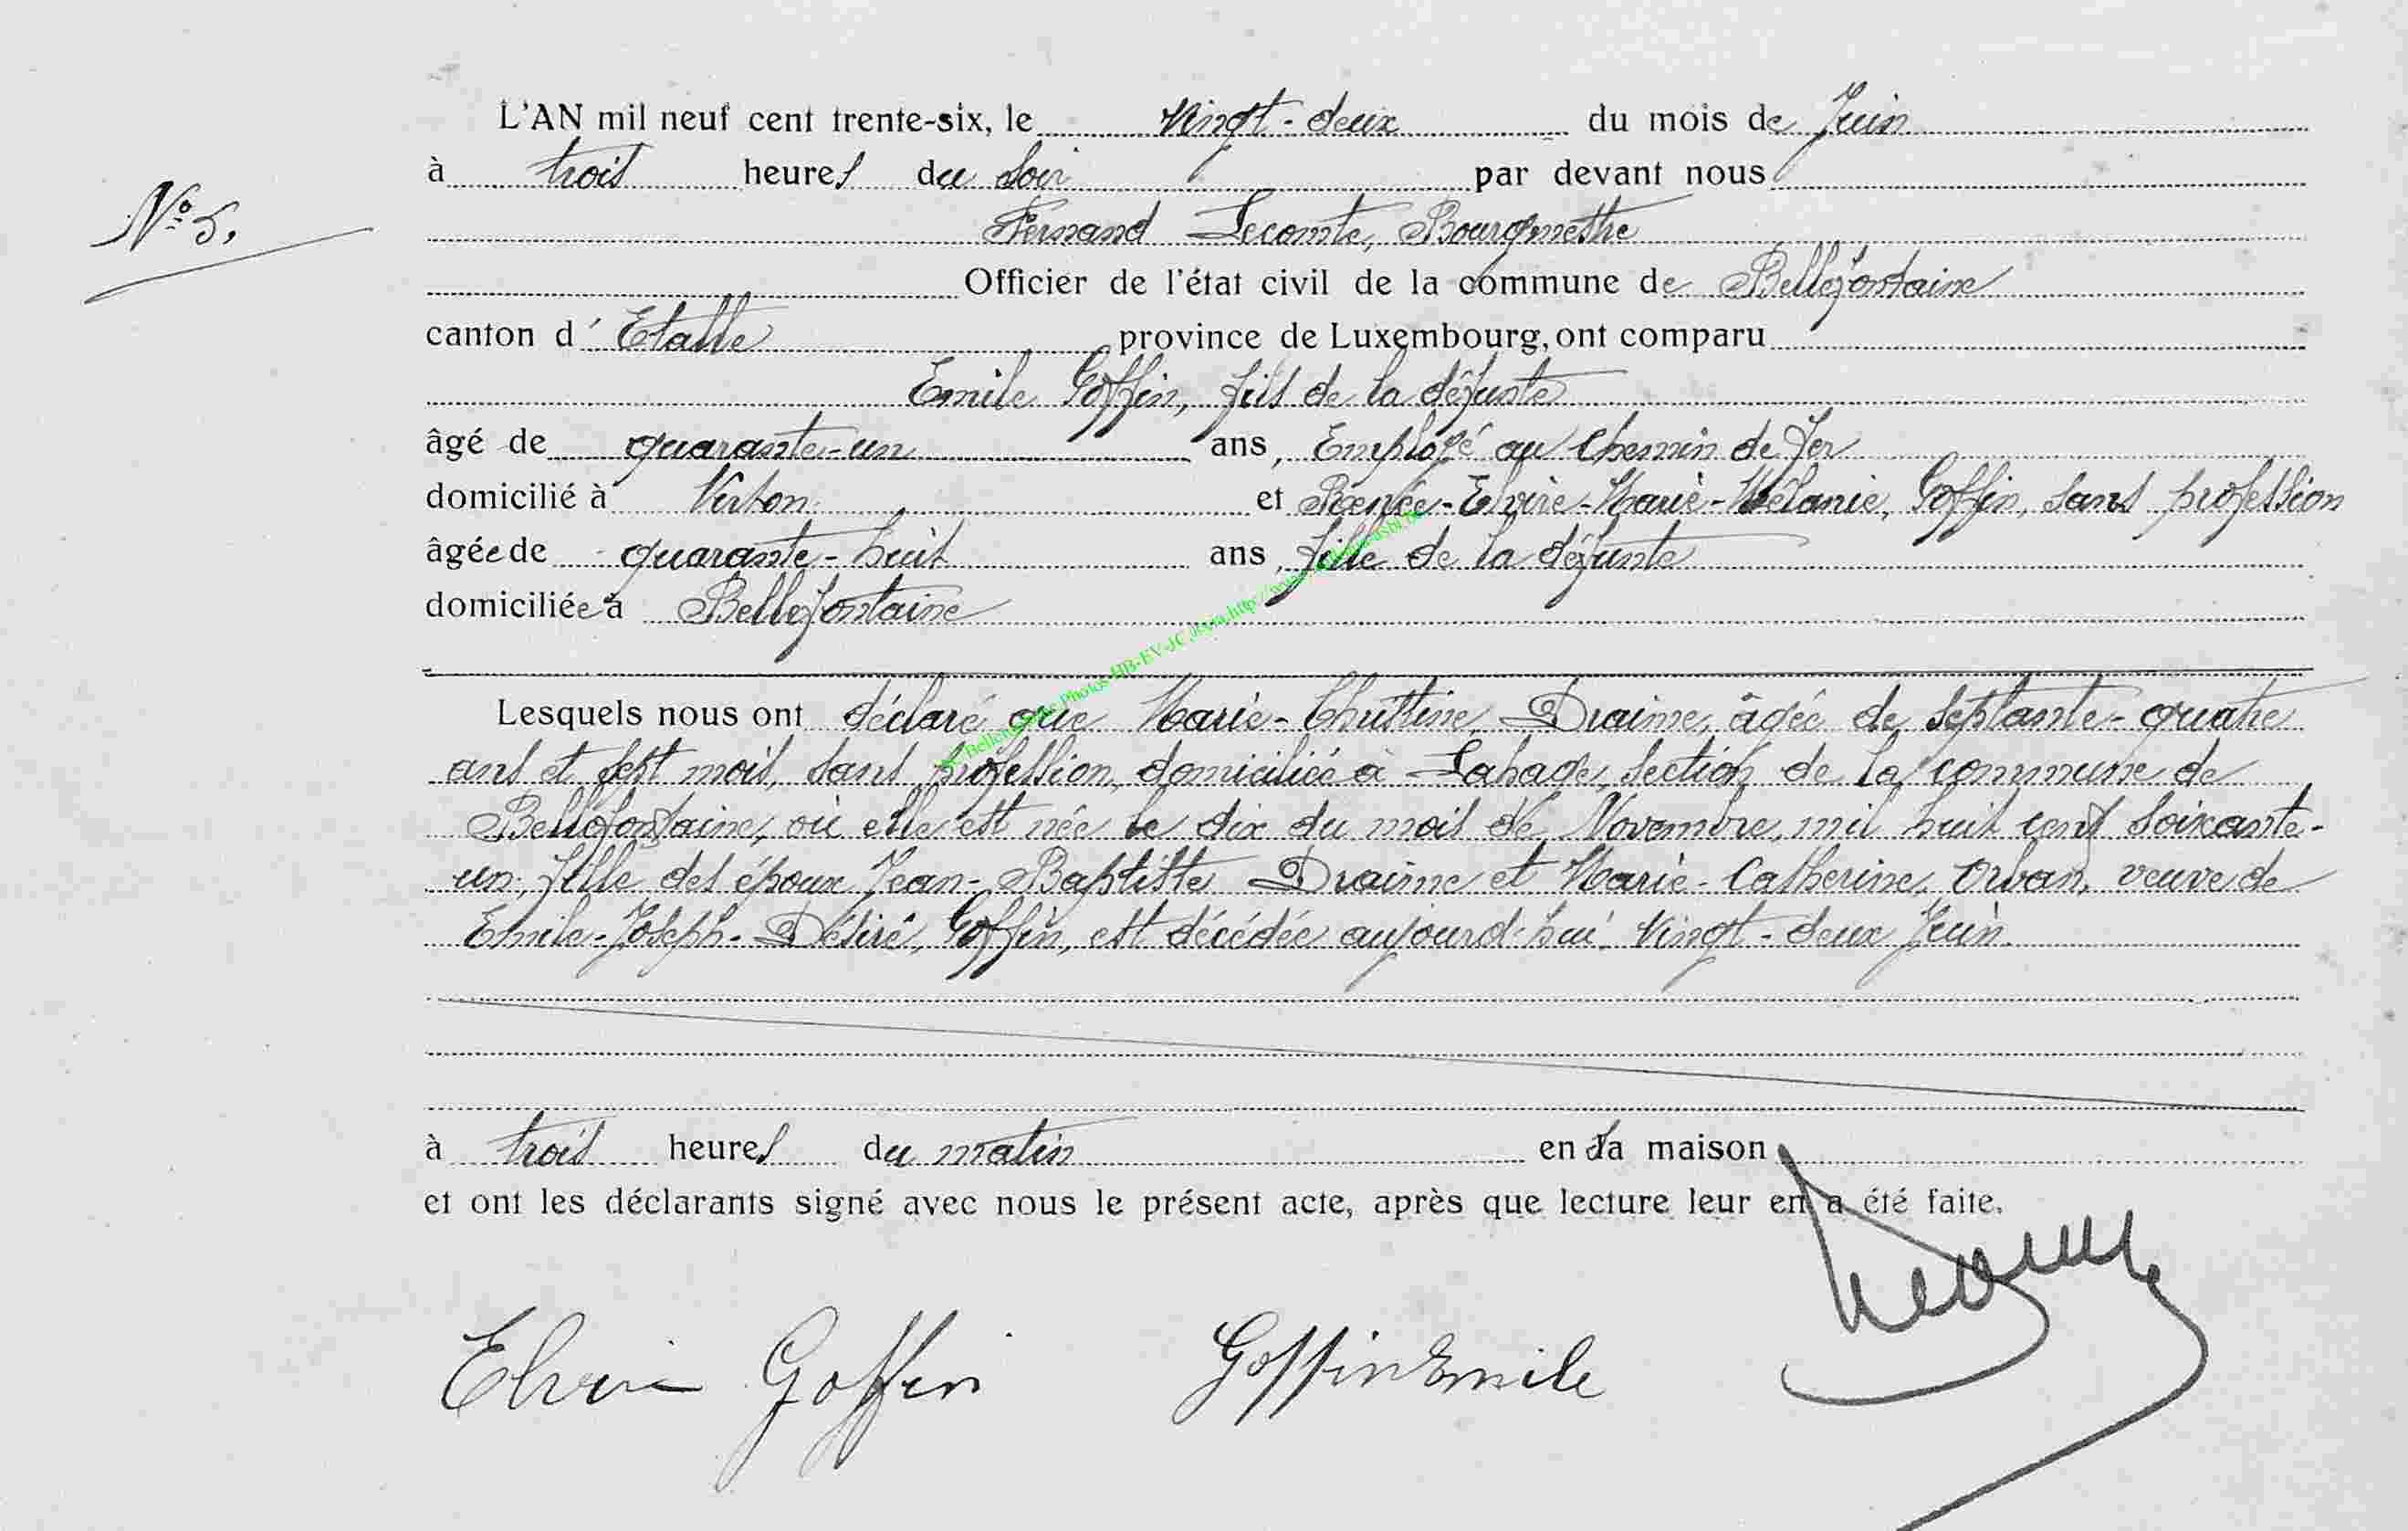 L'AN mil neuf cent trente-six, le vingt-deux du mois de Juin
à trois heures du soir par devant nous
N° 5.
Fernand Lecomte, Bourgmestre
Officier de l'état civil de la commune de Bellefontaine
canton d' Etalle province de Luxembourg, ont comparu
Emile Goffin, fils de la défunte
âgé de quarante-un ans, Employé au Chemin de Fer
domicilié à Virton et Renée-Elvire-Marie-Mélanie, Goffin, sans profession
âgée de quarante-huit ans, fille de la défunte
domiciliée à Bellefontaine
Photos HB-EV-JC
Lesquels nous ont déclaré que Marie-Christine, Draime, âgée de septante-quatre
ans et sept mois, sans profession, domiciliée à Lahage, section de la commune de
Bellefontaine, où elle est née le dix du mois de Novembre, mil huit cent soixante-
un, fille des époux Jean-Baptiste Draime et Marie-Catherine, Orban, veuve de
Emile-Joseph-Désiré, Goffin, est décédée aujourd'hui vingt-deux Juin.
à trois heures du matin en sa maison
et ont les déclarants signé avec nous le présent acte, après que lecture leur en a été faite.
Elvire Goffin Goffin Emile